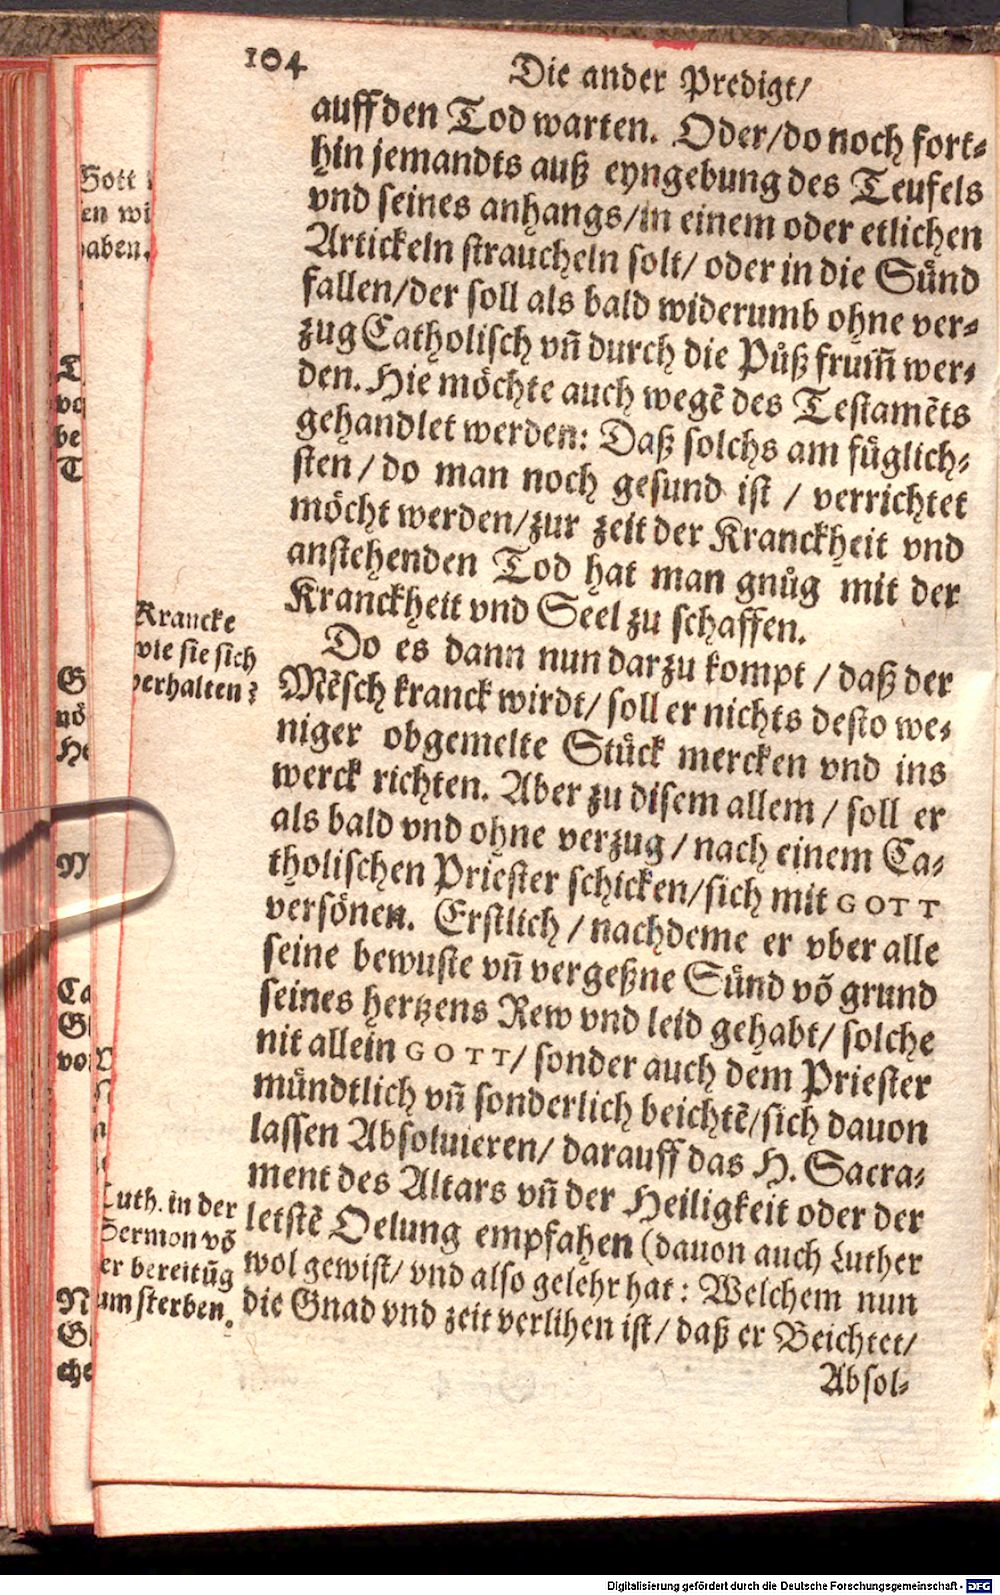 104
Die ander Predigt/
auff den Tod warten. Oder/do noch fort-
hin jemandts auß eyngebung des Teufels
vnd seines anhangs/in einem oder etlichen
Artickeln straucheln solt/ oder in die Sůnd
fallen/der soll als bald widerumb ohne ver-
zug Catholisch vñ durch die Půß frum̃ wer-
den. Hie möchte auch wegẽ des Testamẽts
gehandlet werden: Daß solchs am fůglich-
sten / do man noch gesund ist / verrichtet
möcht werden/zur zeit der Kranckheit vnd
anstehenden Tod hat man gnůg mit der
Kranckheit vnd Seel zu schaffen.
Do es dann nun darzu kompt / daß der
Mẽsch kranck wirdt/ soll er nichts desto we-
niger obgemelte Stůck mercken vnd ins
werck richten. Aber zu disem allem / soll er
als bald vnd ohne verzug / nach einem Ca-
tholischen Priester schicken/sich mit GOTT
versönen. Erstlich / nachdeme er vber alle
seine bewuste vñ vergeßne Sůnd võ grund
seines hertzens Rew vnd leid gehabt/ solche
nit allein GOTT/ sonder auch dem Priester
můndtlich vñ sonderlich beichtẽ/sich dauon
lassen Absoluieren/ darauff das H. Sacra-
ment des Altars vñ der Heiligkeit oder der
letstẽ Oelung empfahen (dauon auch Luther
wol gewist/ vnd also gelehr hat : Welchem nun
die Gnad vnd zeit verlihen ist/ daß er Beichtet/
Absol-
Krancke
wie sie sich
verhalten?
Luth. in der
Sermon võ
er bereitũg
um sterben.
Gott
en wi
haben.
Digitalisierung gefördert durch die Deutsche Forschungsgemeinschaft - DFG